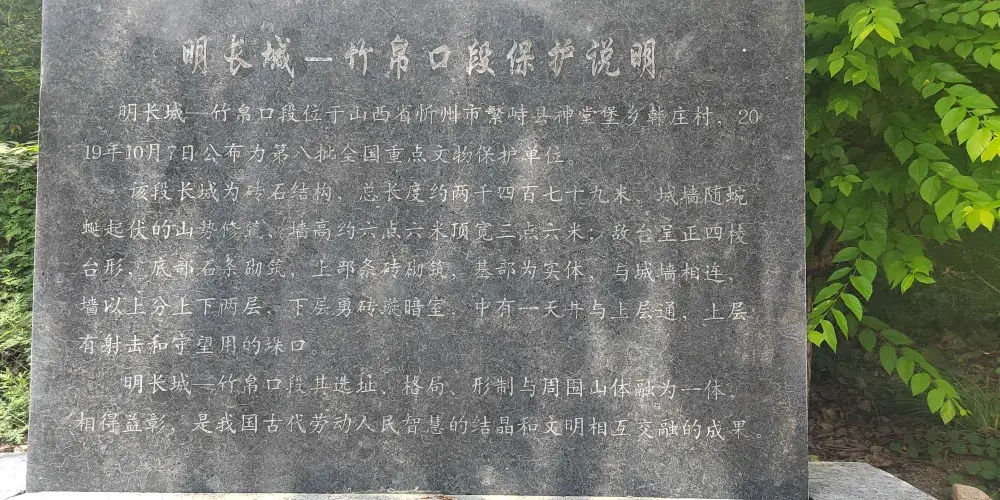 明长城—竹帛口段保护说明
明长城—竹帛口段位于山西省忻州市繁峙县神堂堡乡韩庄村，20
19年10月7日公布为第八批全国重点文物保护单位。
该段长城为砖石结构，总长度约两千四百七十九米，城墙随蜿
蜒起伏的山势修筑，墙高约六点六米顶宽三点六米；敌台呈正四棱
台形，底部石条砌筑，上部条砖砌筑，基部为实体，与城墙相连，
墙以上分上下两层，下层勇砖漩暗室，中有一天井与上层通，上层
有射击和守望用的垛口。
明长城—竹帛口段其选址、格局、形制与周围山体融为一体，
相得益彰，是我国古代劳动人民智慧的结晶和文明相互交融的成果。